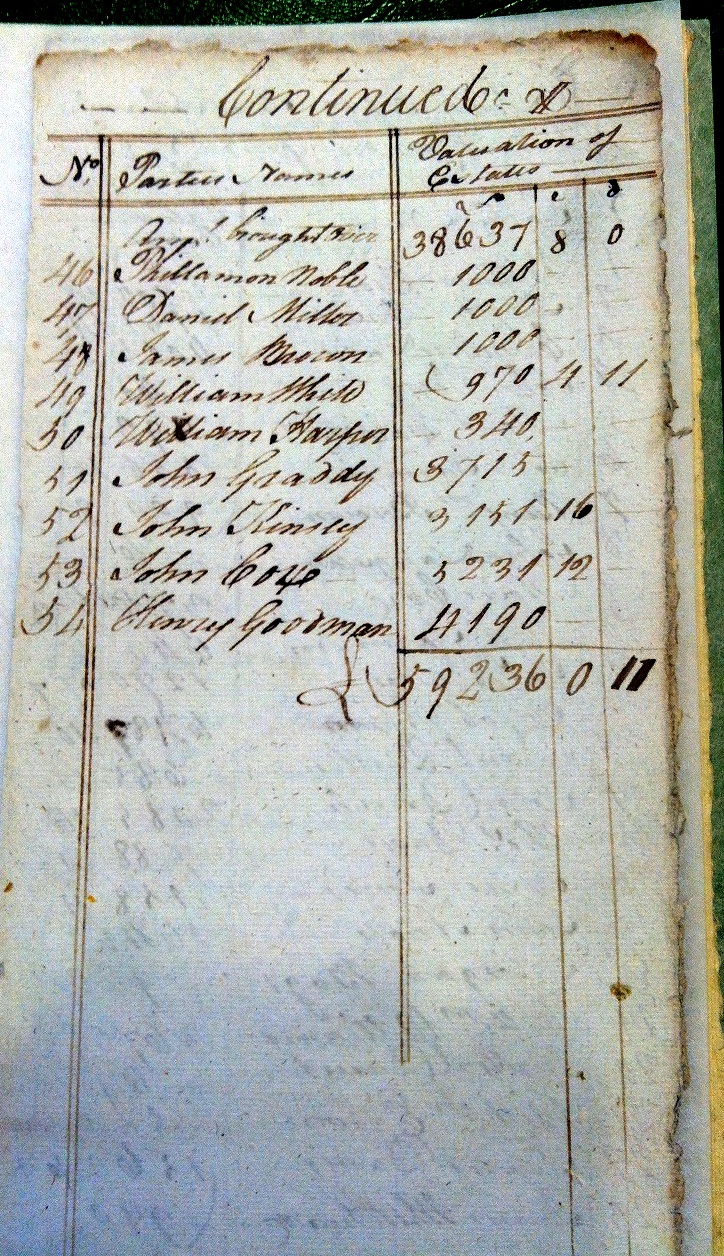 Continued
No. Parties Names Valuation of Estates
£ s d
Amt. brought over 38637 8 0
46 Phillamon Noble 1000
47 Daniel Miller 1000
48 James Brown 1000
49 William White 970 4 11
50 William Harper 340
51 John Graddy 3715
52 John Kinsey 3151 16
53 John Coxe 5231 12
54 Henry Goodman 4190
£ 59236 0 11